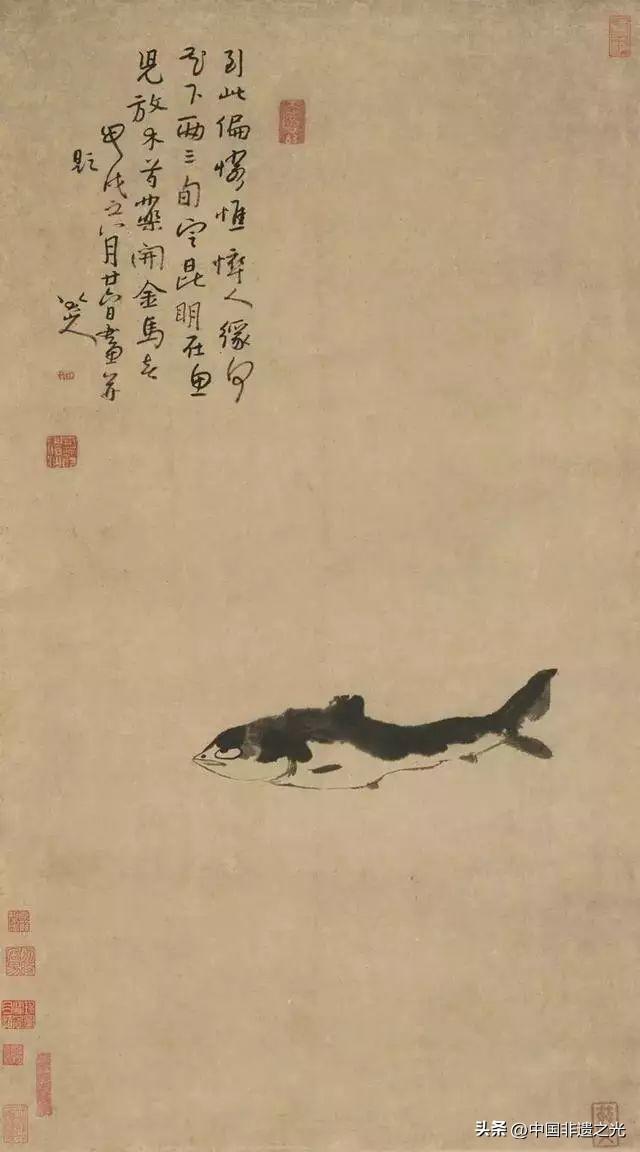 到此偏憐憔悴人緣何
花下兩三旬定昆明在魚
兒放木芍藥開金馬春
甲戌之八月廿六日畫并
題
八大山人
头条 @中国非遗之光